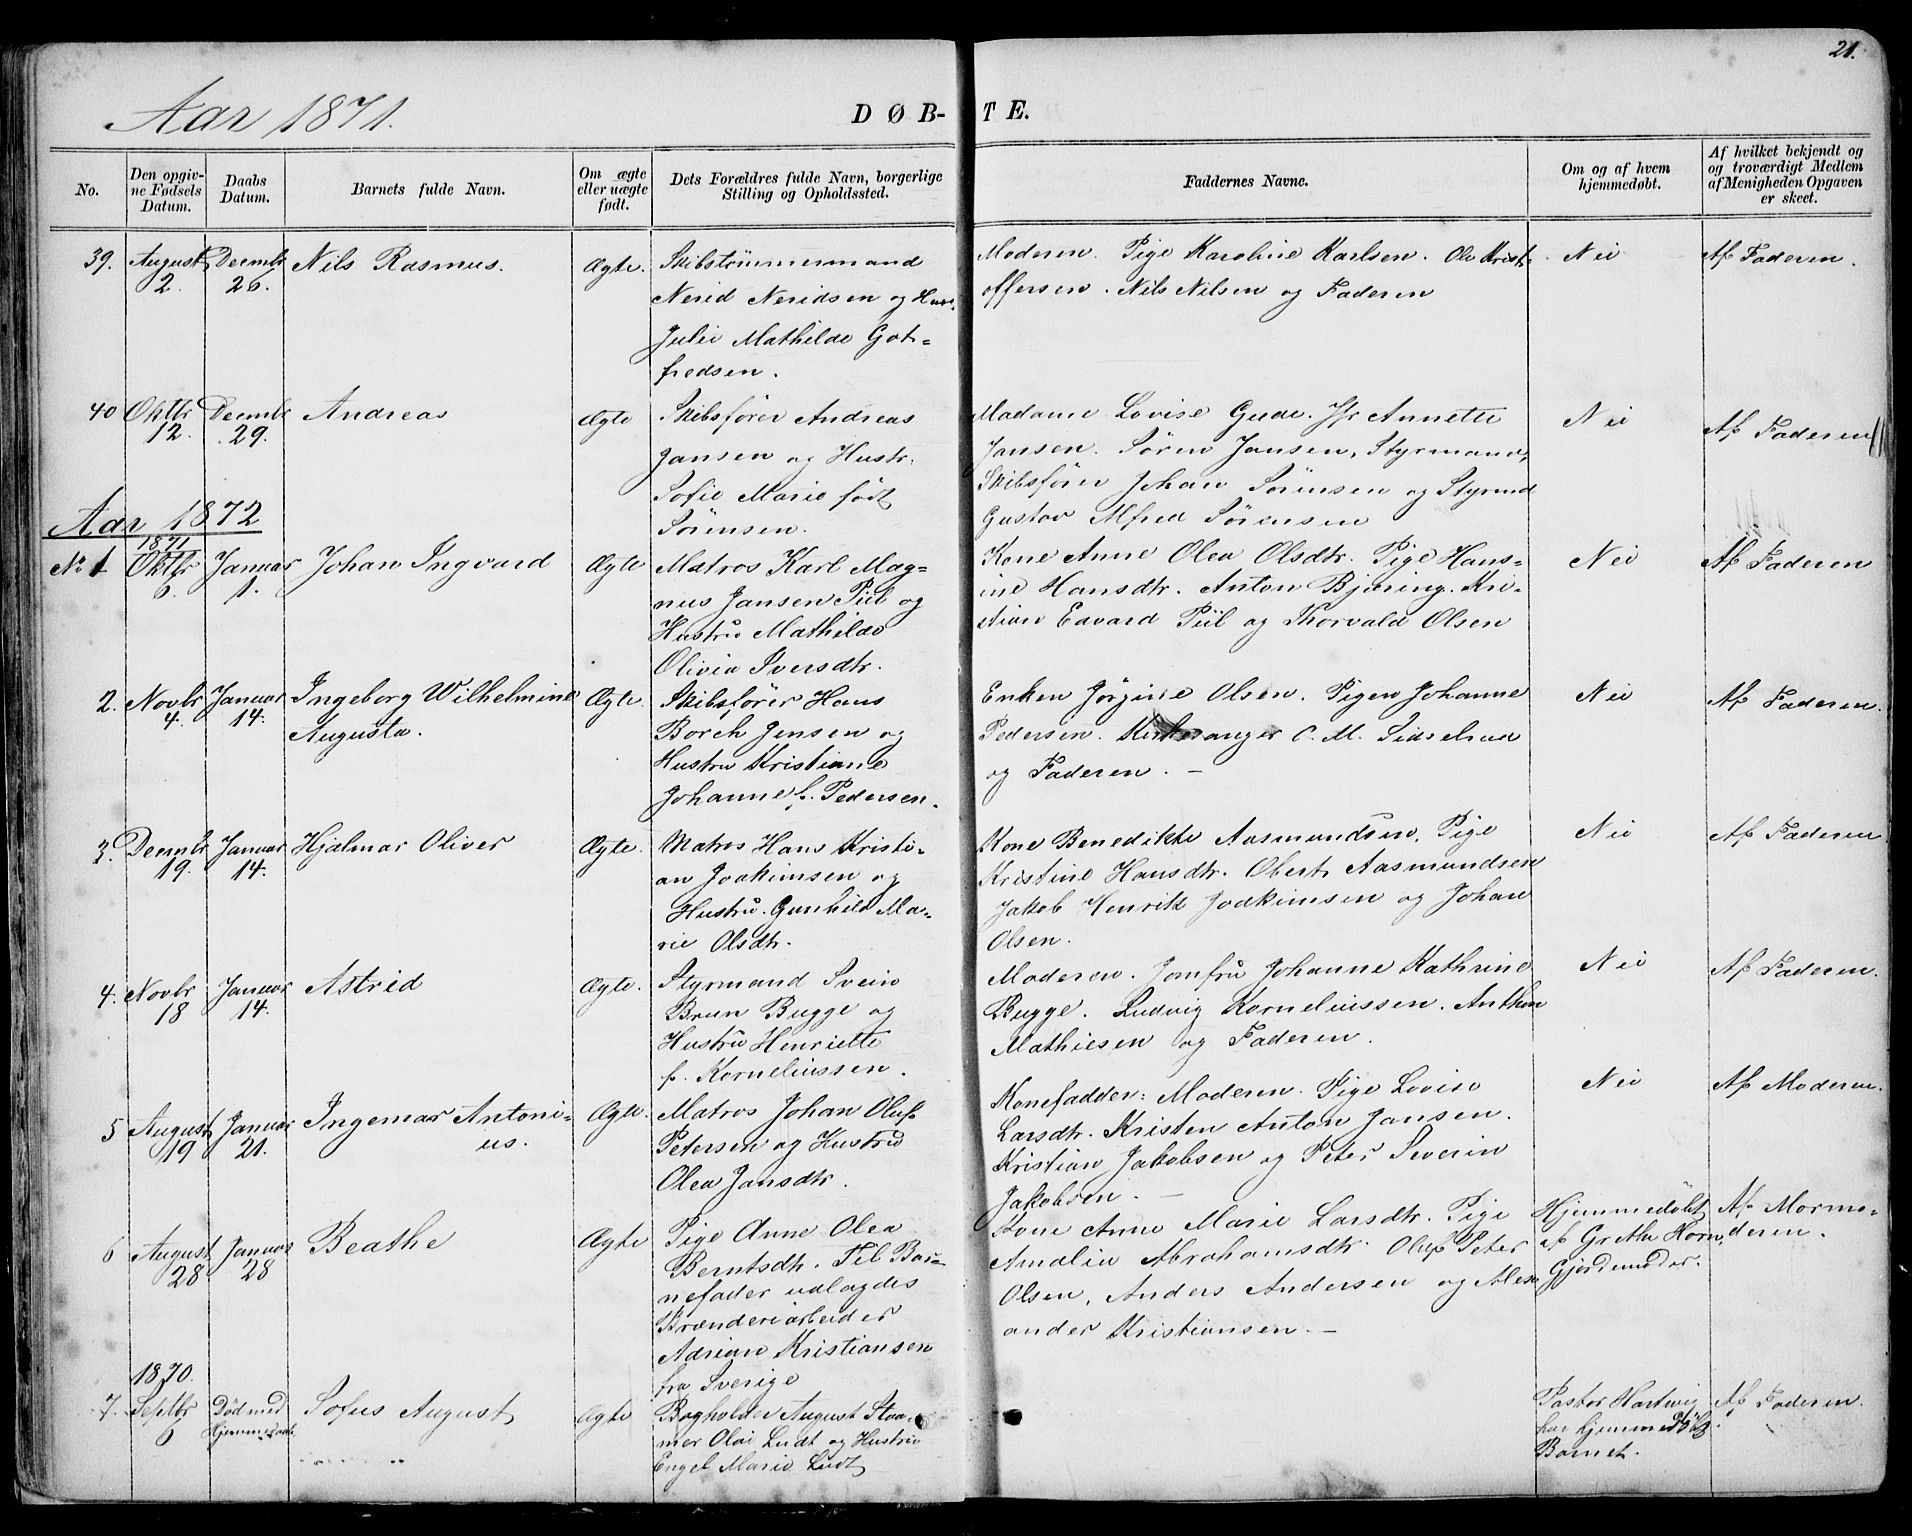 21.
Aar 1871.
DØB-TE.
No.
Den opgiv-
ne Fødsels
Datum.
Daabs
Datum.
Barnets fulde Navn.
Om ægte
eller uægte
født.
Dets Forældres fulde Navn, borgerlige
Stilling og Opholdssted.
Faddernes Navne.
Om og af hvem
hjemmedøbt.
Af hvilket bekjendt og
og troværdigt Medlem
af Menigheden Opgaven
er skeet.
39.
August
2.
Decmbr
26.
Nils Rasmus.
Ægte.
Skibstömmermand
Nerid Neridsen og Hus.
Julie Mathilde Got-
fredsen.
Moderen. Pige Karoline Karlsen. Ole Krist-
offersen. Nils Nilsen og Faderen
Nei
Af Faderen.
40
Oktbr
12.
Decmbr
29.
Andreas
Ægte
Skibsfører Andreas
Jansen og Hustr.
Sofie Marie født
Sörensen.
Madame Lovise Gude. Jfr Annette
Jansen. Sören Jansen, Styrmand,
Skibsförer Johan Sörensen og Styrmd
Gustav Alfred Sörensen
Nei
Af Faderen
Aar 1872
No 1
1871
Oktbr
6.
Januar
1.
Johan Ingvard
Ægte
Matros Karl Mag-
nus Jansen Piil og
Hustru Mathilde
Olivia Iversdtr.
Kone Anne Olea Olsdtr. Pige Hans-
ine Hansdtr. Anton Björing. Kri-
stian Edvard Piil og Thorvald Olsen
Nei
Af Faderen
2.
Novbr
4.
Januar
14.
Ingeborg Wilhelmine
Augusta.
Ægte.
Skibsförer Hans
Borch Jensen og
Hustru Kristiane
Johanne f. Pedersen.
Enken Jörgine Olsen. Pigen Johanne
Pedersen. Kirkesanger C. M. Sidselrud
og Faderen. —
Nei
Af Faderen.
3.
Decmbr
19.
Januar
14.
Hjalmar Oliver
Ægte.
Matros Hans Kristi-
an Joakimsen og
Hustru Gunhild Ma-
rie Olsdtr.
Kone Benedikte Aasmundsen, Pige
Kristine Hansdtr. Obert Aasmundsen
Jakob Henrik Joakimsen og Johan
Olsen.
Nei
Af Faderen
4.
Novbr
18
Januar
14.
Astrid
Ægte.
Styrmand Svein
Brun Bugge og
Hustru Henriette
f. Korneliussen.
Moderen. Jomfru Johanne Kathrine
Bugge. Ludvig Korneliussen. Anthon
Mathiesen og Faderen.
Nei
Af Faderen.
5
August
19
Januar
21.
Ingemar Antoni-
us.
Ægte.
Matros Johan Oluf
Petersen og Hustru
Olea Jansdtr.
Konefadder: Moderen. Pige Lovise
Larsdtr. Kristen Anton Jansen.
Kristian Jakobsen og Peter Severin
Jakobsen. —
Nei
Af Moderen.
6
August
28
Januar
28
Beathe
Ægte
Pige Anne Olea
Berntsdtr. Til Bar-
nefader udlagdes
Brænderiarbeider
Adrian Kristiansen
fra Sverige
Kone Anne Marie Larsdtr. Pige
Amalie Abrahamsdtr. Oluf Peter
Olsen, Anders Andersen og Alex-
ander Kristiansen. —
Hjemmedøbt
af Grethe Horn,
Gjordemoder.
Af Mormo-
deren.
7.
1870.
Septbr
6
Död med
Hjemmedaab
Sofus August
Ægte
Bogholder August Staa-
mer Olai Ludt og Hustru
Engel Marie Ludt
Pastor Hartwig
har hjemmedöbt
Barnet.
Af Faderen.